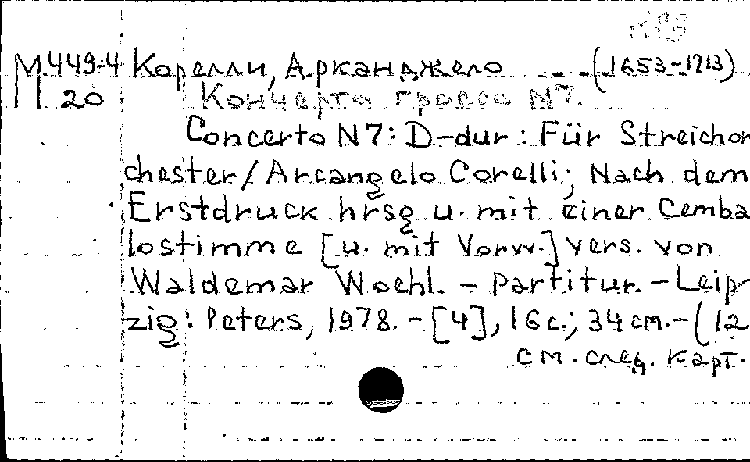 М449-4 Корелли, Арканджело (1653-1713)
20 Кончерто гроссо N7.
Concerto N7: D-dur: Für Streichor
chester/Arcangelo Corelli; Nach dem
Erstdruck hrsg u. mit einer Cemba
lostimme [u. mit Vorw.] vers. von
Waldemar Woehl. - Partitur. - Leip
zig: Peters, 1978. - [4], 16 c.; 34 cm. - (12
см. след. карт.